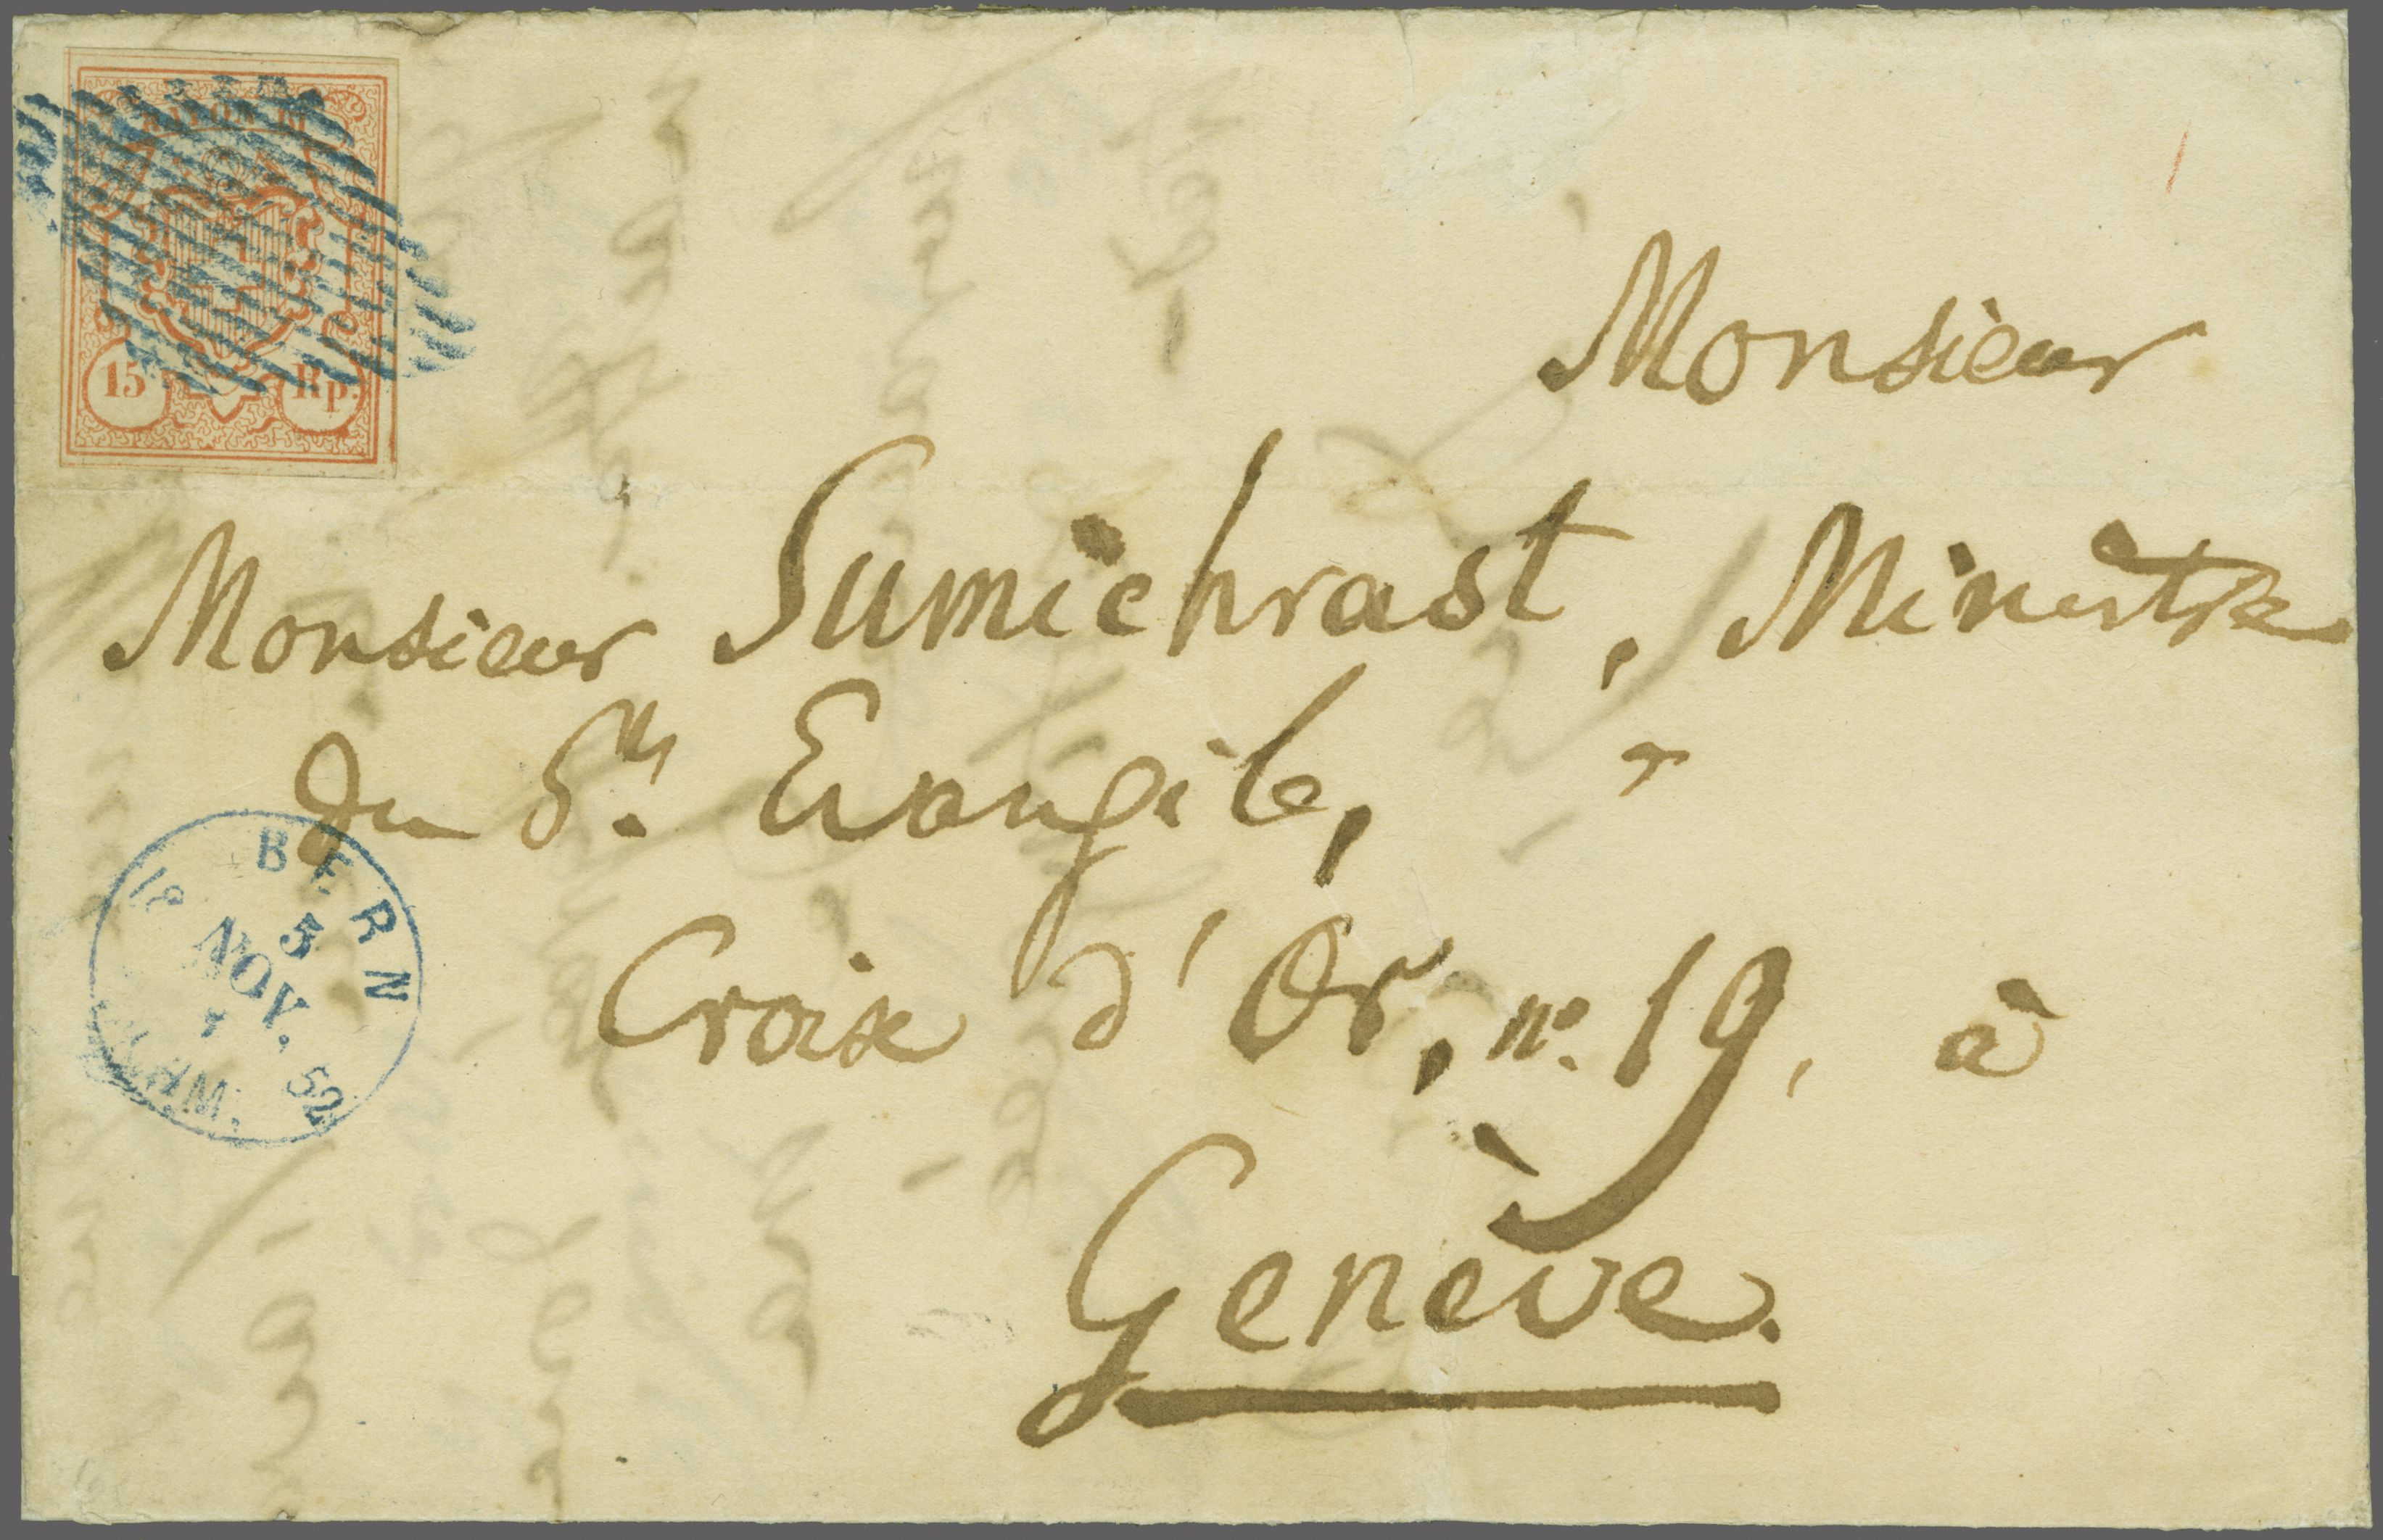 RAYON III
15 Rp.
Monsieur
Monsieur Sumichrast, Ministre
du St. Evangile,
Croix d'Or, no. 19, à
Genève.
BERN
18 5 NOV. 52
NACHM.